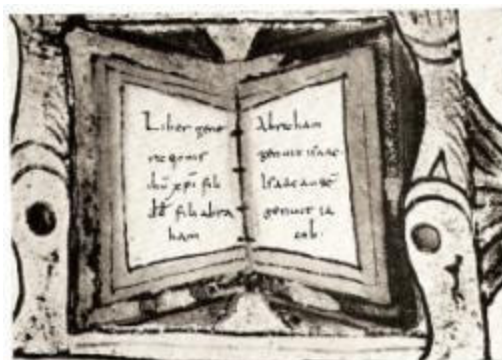 Liber gene
rationis
ihū xp̄i fili
dd̄ fili abra
ham
Abraham
genuit isaac.
Isaac autē
genuit ia
cob.